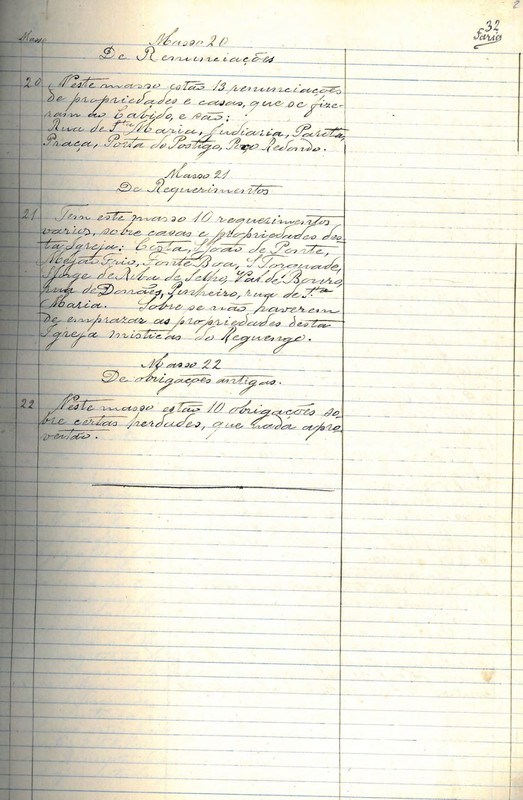 32
Farios
Masso
Masso 20
De Renunciações
20 Neste masso estão 13 renunciações
de propriedades e casas, que se fize-
ram ao Cabido, e são:
Rua de Sta Maria, Judiaria,
Praça, Porta do Postigo, Poço Redondo.
Masso 21
De Requerimentos
21 Tem este masso 10 requerimentos
varios, sobre casas e propriedades des-
ta Igreja: Costa, S. João de Ponte,
Mejão Frio, Fonte Boa, S. Torquade,
S. Jorge de Riba de Selho, Val de Bouro,
rua de Donães, Pinheiro, rua de Sta
Maria. Sobre se não haverem
de emprazar as propriedades desta
Igreja misticas do Reguengo.
Masso 22
De obrigações antigas.
22 Neste masso estão 10 obrigações so-
bre certas perdudes, que nada apro-
veitão.